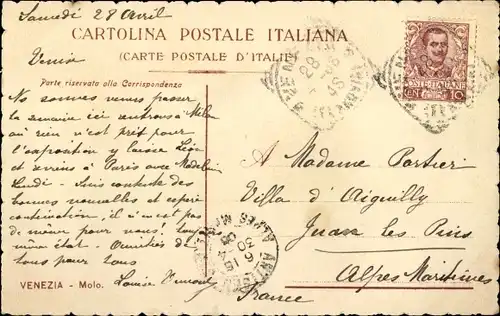 Samedi 28 Avril
CARTOLINA POSTALE ITALIANA
(CARTE POSTALE D'ITALIE)
Venise
Parte riservata alla Corrispondenza
Nous sommes venus passer
la semaine ici rentrons à Milan
où rien n'est prêt pour
l'exposition y laisse Léon
et serons à Paris avec Madeleine
Lundi - Suis contente des
bonnes nouvelles et espère
continuation, il n'est pas
de même pour nous! toujours
même état. Amitiés de
tous pour tous
Louise
VENEZIA - Molo.
POSTE ITALIANE
CENT. 10
A Madame Portier
Villa d'Aiguilly
Juan les Pins
Alpes Maritimes
France
6 15
30